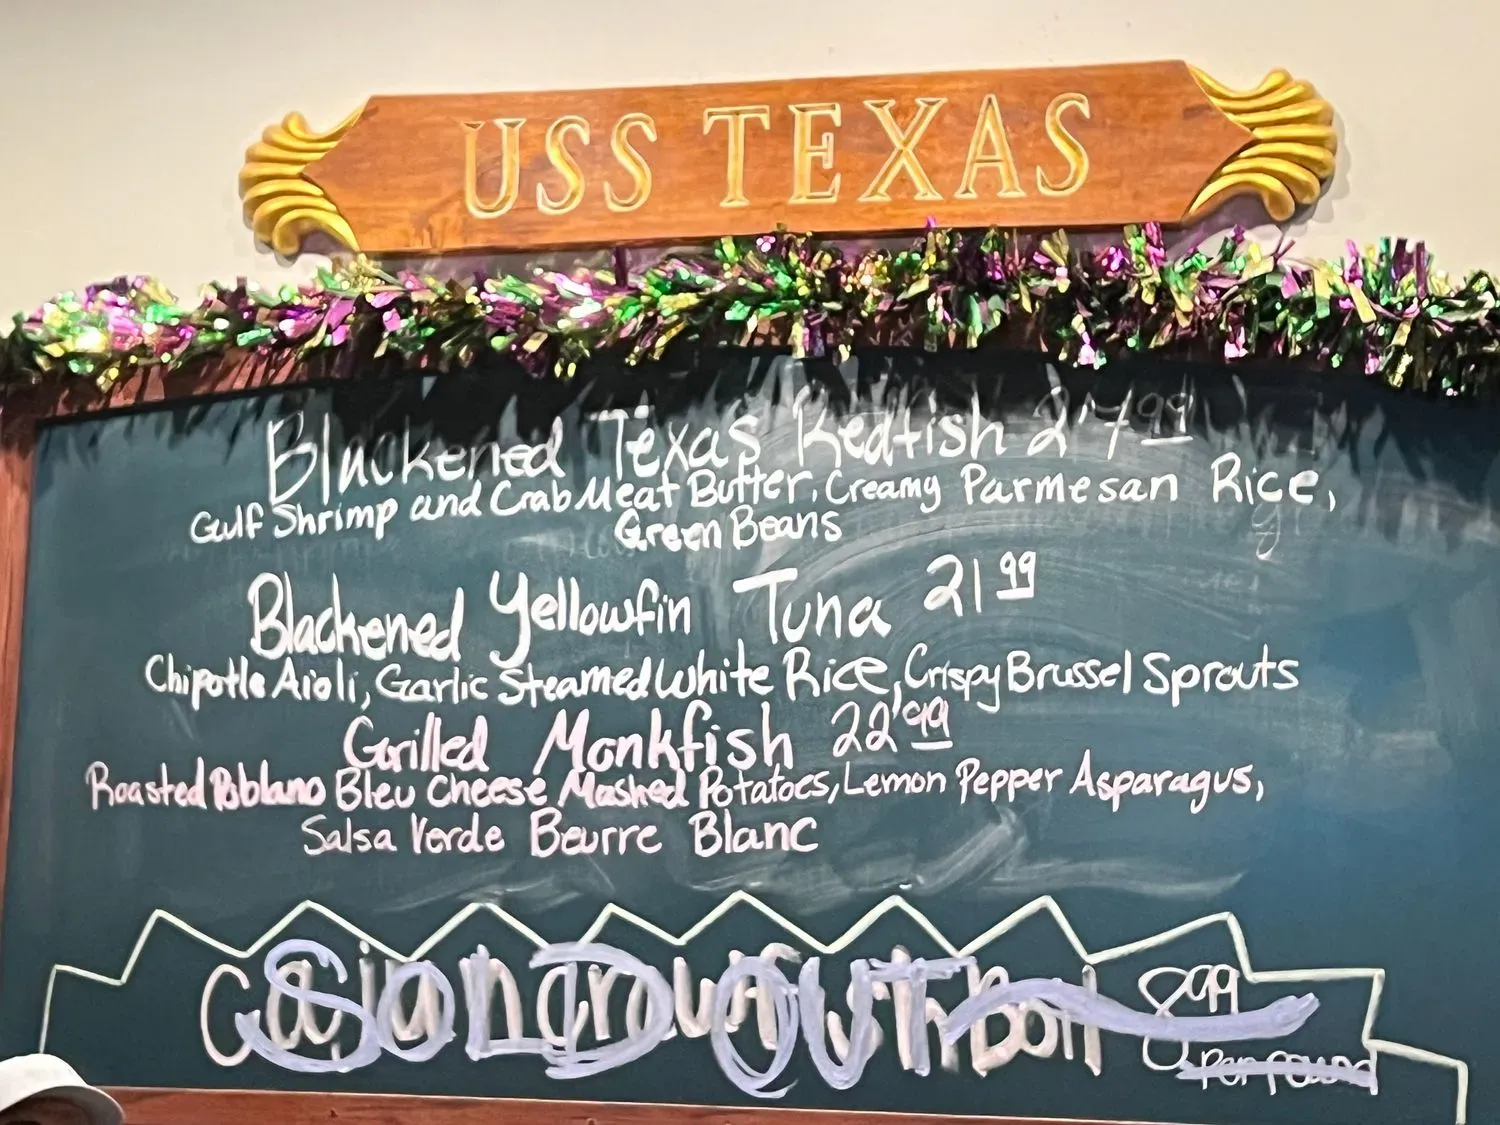 USS TEXAS
Blackened Texas Redfish 27 99
Gulf Shrimp and Crab Meat Butter, Creamy Parmesan Rice,
Green Beans
Blackened Yellowfin Tuna 21 99
Chipotle Aioli, Garlic Steamed White Rice, Crispy Brussel Sprouts
Grilled Monkfish 22 99
Roasted Poblano Bleu Cheese Mashed Potatoes, Lemon Pepper Asparagus,
Salsa Verde Beurre Blanc
Cajun Crawfish Boil 8 99
SOLD OUT
Per Pound